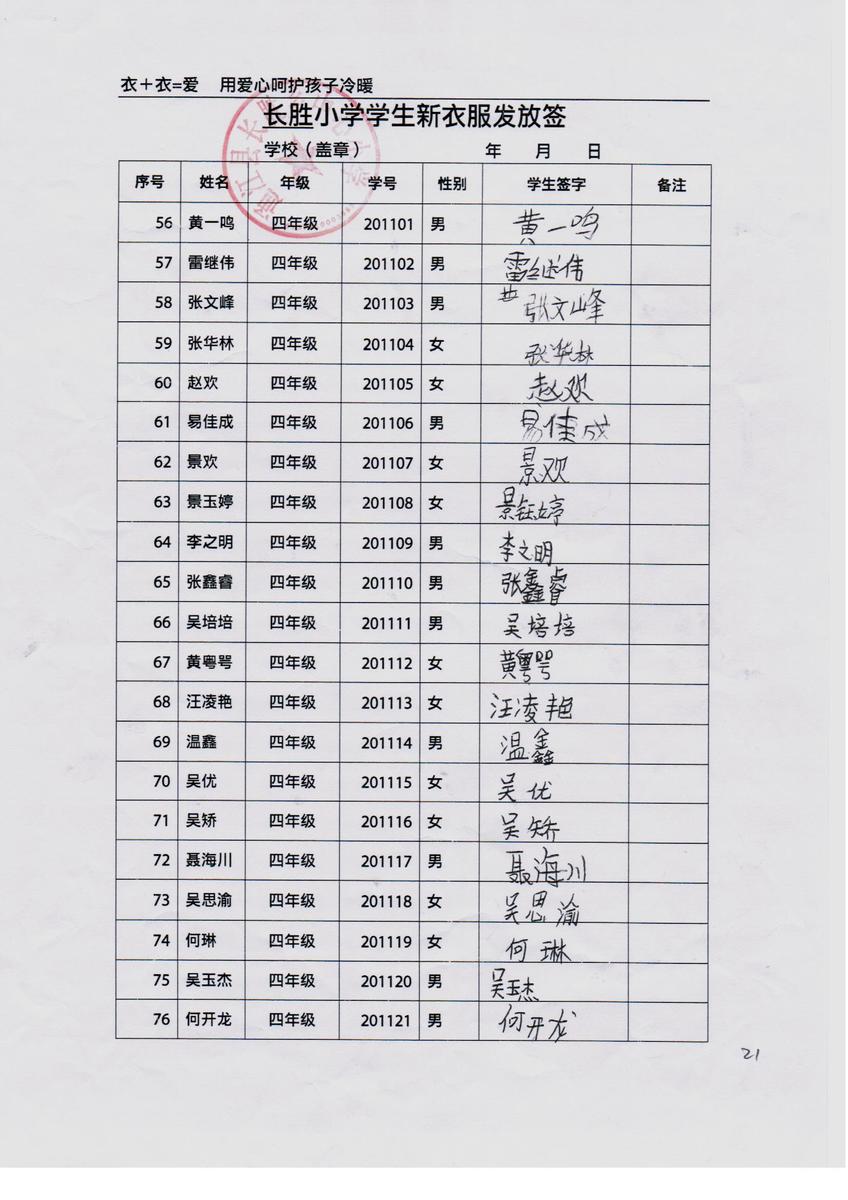 衣＋衣=爱 用爱心呵护孩子冷暖
长胜小学学生新衣服发放签
学校（盖章） 年 月 日
序号 姓名 年级 学号 性别 学生签字 备注
56 黄一鸣 四年级 201101 男 黄一鸣
57 雷继伟 四年级 201102 男 雷继伟
58 张文峰 四年级 201103 男 张文峰
59 张华林 四年级 201104 女 张华林
60 赵欢 四年级 201105 女 赵欢
61 易佳成 四年级 201106 男 易佳成
62 景欢 四年级 201107 女 景欢
63 景玉婷 四年级 201108 女 景钰婷
64 李之明 四年级 201109 男 李文明
65 张鑫睿 四年级 201110 男 张鑫睿
66 吴培培 四年级 201111 男 吴培培
67 黄粤咢 四年级 201112 女 黄粤咢
68 汪凌艳 四年级 201113 女 汪凌艳
69 温鑫 四年级 201114 男 温鑫
70 吴优 四年级 201115 女 吴优
71 吴矫 四年级 201116 女 吴矫
72 聂海川 四年级 201117 男 聂海川
73 吴思渝 四年级 201118 女 吴思渝
74 何琳 四年级 201119 女 何琳
75 吴玉杰 四年级 201120 男 吴玉杰
76 何开龙 四年级 201121 男 何开龙
21